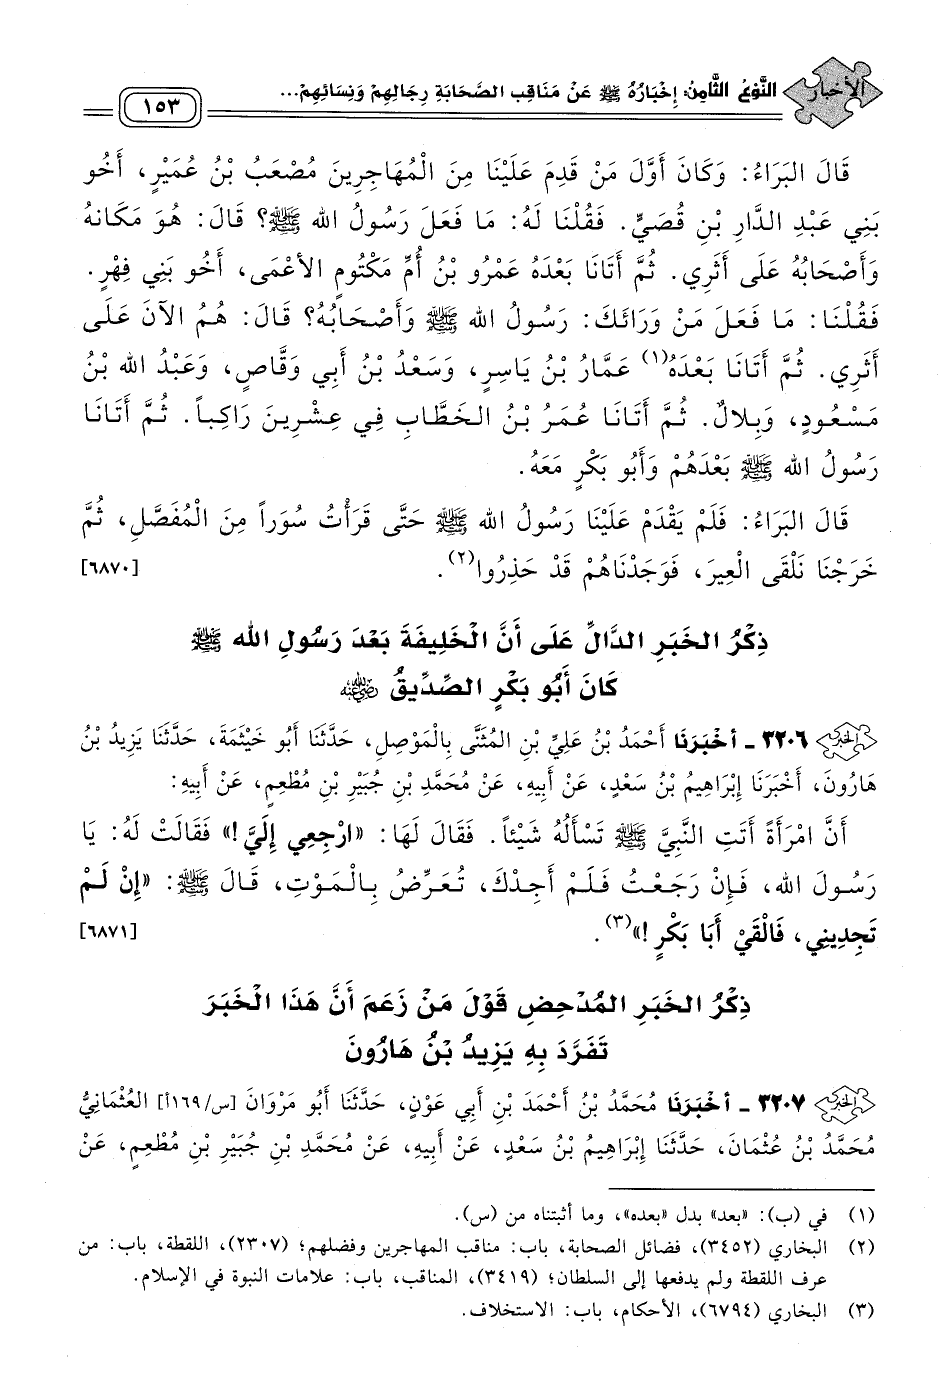 الأخبار
النَّوْعُ الثَّامِنُ: إِخْبَارُهُ ﷺ عَنْ مَنَاقِبِ الصَّحَابَةِ رِجَالِهِمْ وَنِسَائِهِمْ...
١٥٣
قَالَ البَرَاءُ: وَكَانَ أَوَّلَ مَنْ قَدِمَ عَلَيْنَا مِنَ الْمُهَاجِرِينَ مُصْعَبُ بْنُ عُمَيْرٍ، أَخُو
بَنِي عَبْدِ الدَّارِ بْنِ قُصَيٍّ. فَقُلْنَا لَهُ: مَا فَعَلَ رَسُولُ الله ﷺ؟ قَالَ: هُوَ مَكَانهُ
وَأَصْحَابُهُ عَلَى أَثَرِي. ثُمَّ أَتَانَا بَعْدَهُ عَمْرُو بْنُ أُمِّ مَكْتُومٍ الأعْمَى، أَخُو بَنِي فِهْرٍ.
فَقُلْنَا: مَا فَعَلَ مَنْ وَرَائَكَ: رَسُولُ الله ﷺ وَأَصْحَابُهُ؟ قَالَ: هُمُ الآنَ عَلَى
أَثَرِي. ثُمَّ أَتَانَا بَعْدَهُ(١) عَمَّارُ بْنُ يَاسِرٍ، وَسَعْدُ بْنُ أَبِي وَقَّاصٍ، وَعَبْدُ الله بْنُ
مَسْعُودٍ، وَبِلالٌ. ثُمَّ أَتَانَا عُمَرُ بْنُ الخَطَّابِ فِي عِشْرِينَ رَاكِباً. ثُمَّ أَتَانَا
رَسُولُ الله ﷺ بَعْدَهُمْ وَأَبُو بَكْرٍ مَعَهُ.
قَالَ البَرَاءُ: فَلَمْ يَقْدَمْ عَلَيْنَا رَسُولُ الله ﷺ حَتَّى قَرَأْتُ سُوَراً مِنَ الْمُفَصَّلِ، ثُمَّ
خَرَجْنَا نَلْقَى الْعِيرَ، فَوَجَدْنَاهُمْ قَدْ حَذِرُوا(٢). [٦٨٧٠]
ذِكْرُ الخَبَرِ الدَّالِّ عَلَى أَنَّ الْخَلِيفَةَ بَعْدَ رَسُولِ الله ﷺ
كَانَ أَبُو بَكْرٍ الصِّدِّيقُ رضي الله عنه
٣٢٠٦ - أَخْبَرَنَا أَحْمَدُ بْنُ عَلِيِّ بْنِ المُثَنَّى بِالْمَوْصِلِ، حَدَّثَنَا أَبُو خَيْثَمَةَ، حَدَّثَنَا يَزِيدُ بْنُ
هَارُونَ، أَخْبَرَنَا إِبْرَاهِيمُ بْنُ سَعْدٍ، عَنْ أَبِيهِ، عَنْ مُحَمَّدِ بْنِ جُبَيْرِ بْنِ مُطْعِمٍ، عَنْ أَبِيهِ:
أَنَّ امْرَأَةً أَتَتِ النَّبِيَّ ﷺ تَسْأَلُهُ شَيْئاً. فَقَالَ لَهَا: «ارْجِعِي إِلَيَّ!» فَقَالَتْ لَهُ: يَا
رَسُولَ الله، فَإِنْ رَجَعْتُ فَلَمْ أَجِدْكَ، تُعَرِّضُ بِالْمَوْتِ، قَالَ ﷺ: «إِنْ لَمْ
تَجِدِينِي، فَالْقَيْ أَبَا بَكْرٍ!»(٣). [٦٨٧١]
ذِكْرُ الخَبَرِ المُدْحِضِ قَوْلَ مَنْ زَعَمَ أَنَّ هَذَا الْخَبَرَ
تَفَرَّدَ بِهِ يَزِيدُ بْنُ هَارُونَ
٣٢٠٧ - أَخْبَرَنَا مُحَمَّدُ بْنُ أَحْمَدَ بْنِ أَبِي عَوْنٍ، حَدَّثَنَا أَبُو مَرْوَانَ [س/١٦٩أ] العُثْمَانِيُّ
مُحَمَّدُ بْنُ عُثْمَانَ، حَدَّثَنَا إِبْرَاهِيمُ بْنُ سَعْدٍ، عَنْ أَبِيهِ، عَنْ مُحَمَّدِ بْنِ جُبَيْرِ بْنِ مُطْعِمٍ، عَنْ
(١) في (ب): «بعد» بدل «بعده»، وما أثبتناه من (س).
(٢) البخاري (٣٤٥٢)، فضائل الصحابة، باب: مناقب المهاجرين وفضلهم؛ (٢٣٠٧)، اللقطة، باب: من
عرف اللقطة ولم يدفعها إلى السلطان؛ (٣٤١٩)، المناقب، باب: علامات النبوة في الإسلام.
(٣) البخاري (٦٧٩٤)، الأحكام، باب: الاستخلاف.